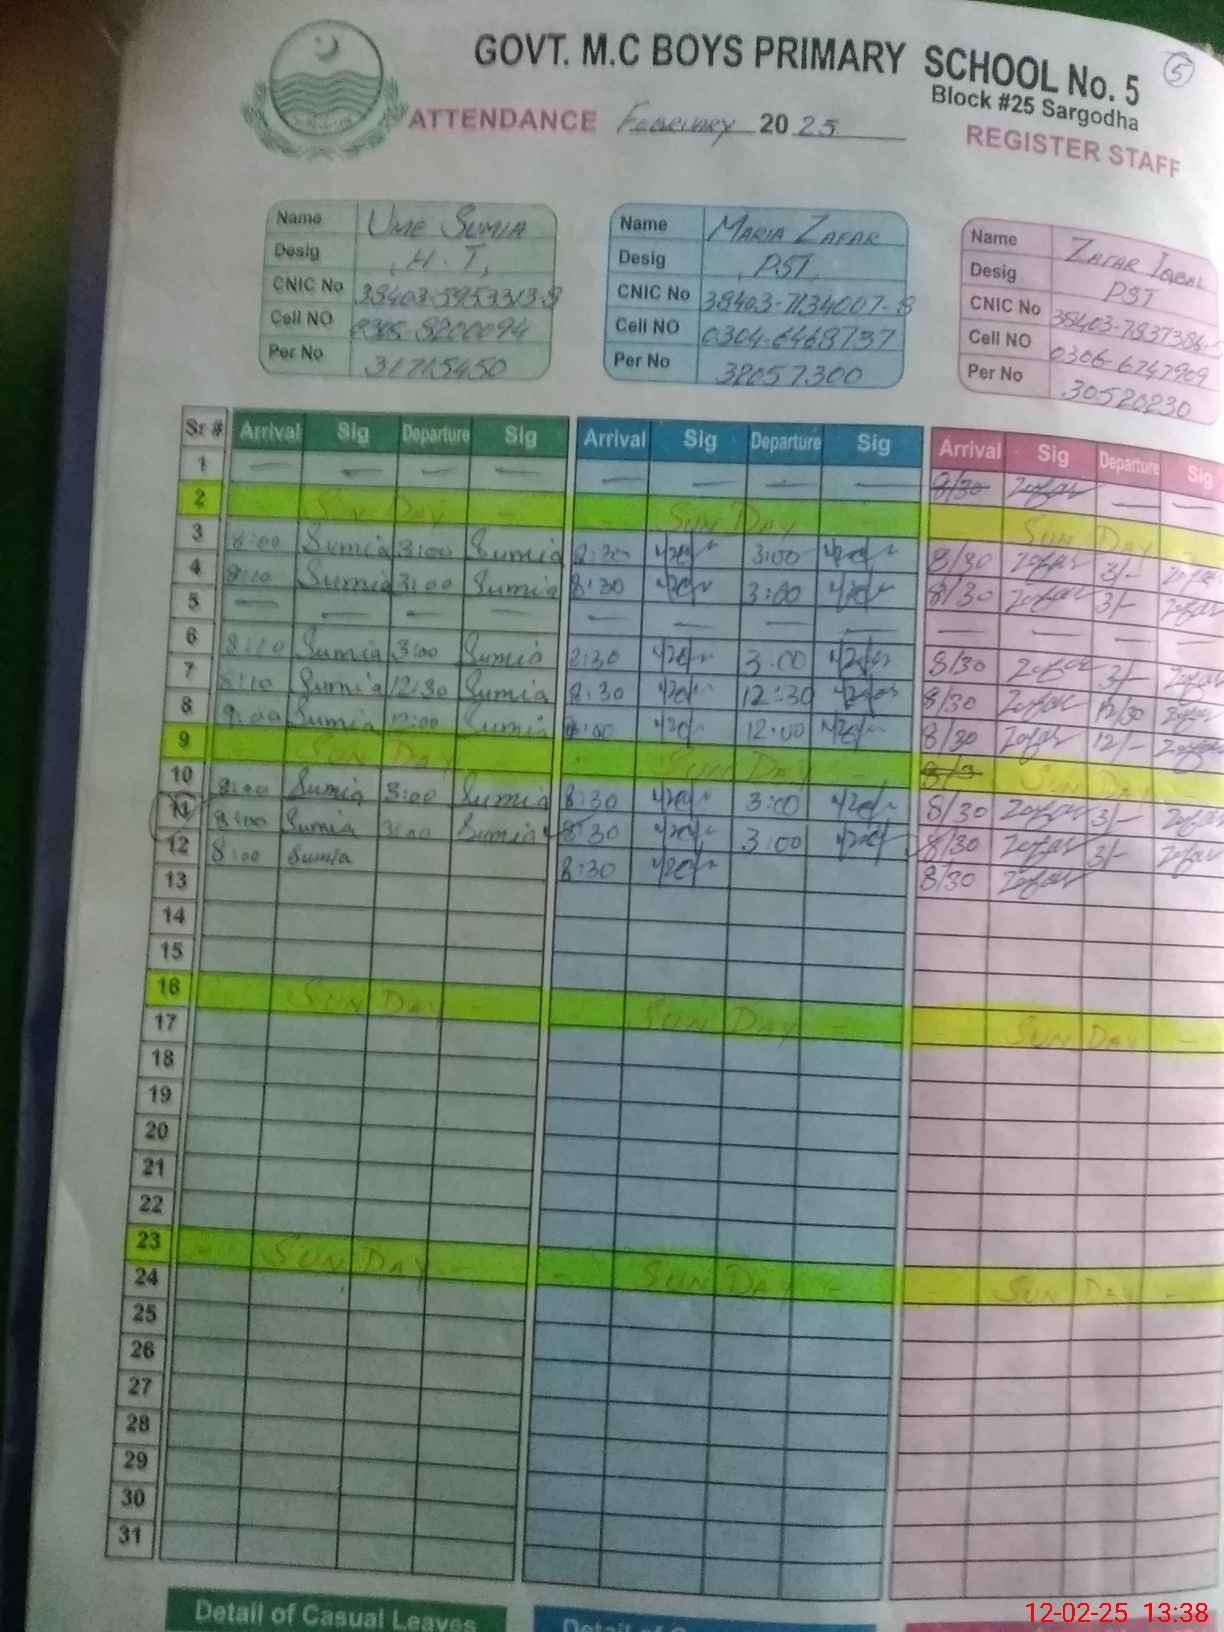 GOVT. M.C BOYS PRIMARY SCHOOL No. 5
5
Block #25 Sargodha
ATTENDANCE February 2025
REGISTER STAFF
Name UME SUMIA Name MARIA ZAFAR Name ZAFAR IQBAL
Desig H.T, Desig PST, Desig PST
CNIC No CNIC No CNIC No
Cell NO Cell NO Cell NO
Per No 31715450 Per No 32057300 Per No 30520230
Sr # Arrival Sig Departure Sig Arrival Sig Departure Sig Arrival Sig Departure Sig
1 — — — — — — — — 8/30 Zafar — —
2 SUN DAY SUN DAY SUN DAY
3 8:00 Sumia 3:00 Sumia 8:30 3:00 8/30 Zafar 3/- Zafar
4 8:10 Sumia 3:00 Sumia 8:30 3:00 8/30 Zafar 3/- Zafar
5 — — — — — — — — — — — —
6 8:10 Sumia 3:00 Sumia 8:30 3:00 8/30 Zafar 3/- Zafar
7 8:10 Sumia 12:30 Sumia 8:30 12:30 8/30 Zafar 12/30 Zafar
8 9:00 Sumia 12:00 Sumia 12:00 8/30 Zafar 12/- Zafar
9 SUN DAY SUN DAY SUN DAY
10 8:00 Sumia 3:00 Sumia 8:30 3:00 8/30 Zafar 3/- Zafar
11 8:00 Sumia 3:00 Sumia 8:30 3:00 8/30 Zafar 3/- Zafar
12 8:00 Sumia 8:30 8/30 Zafar
13
14
15
16 SUN DAY SUN DAY SUN DAY
17
18
19
20
21
22
23 SUN DAY SUN DAY SUN DAY
24
25
26
27
28
29
30
31
Detail of Casual Leaves Detail of
12-02-25 13:38